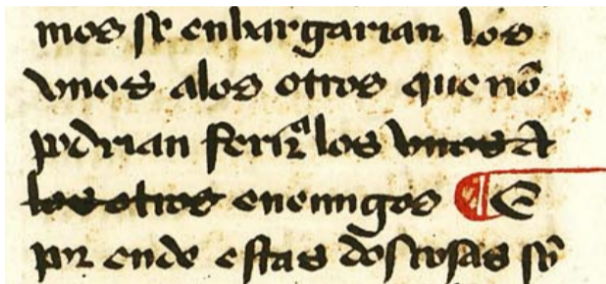 mos se enbargarian los
vnos alos otros que nõ
podrian ferir a los vnos a
los otros enemigos ¶ E
por ende estas dos cosas sõ